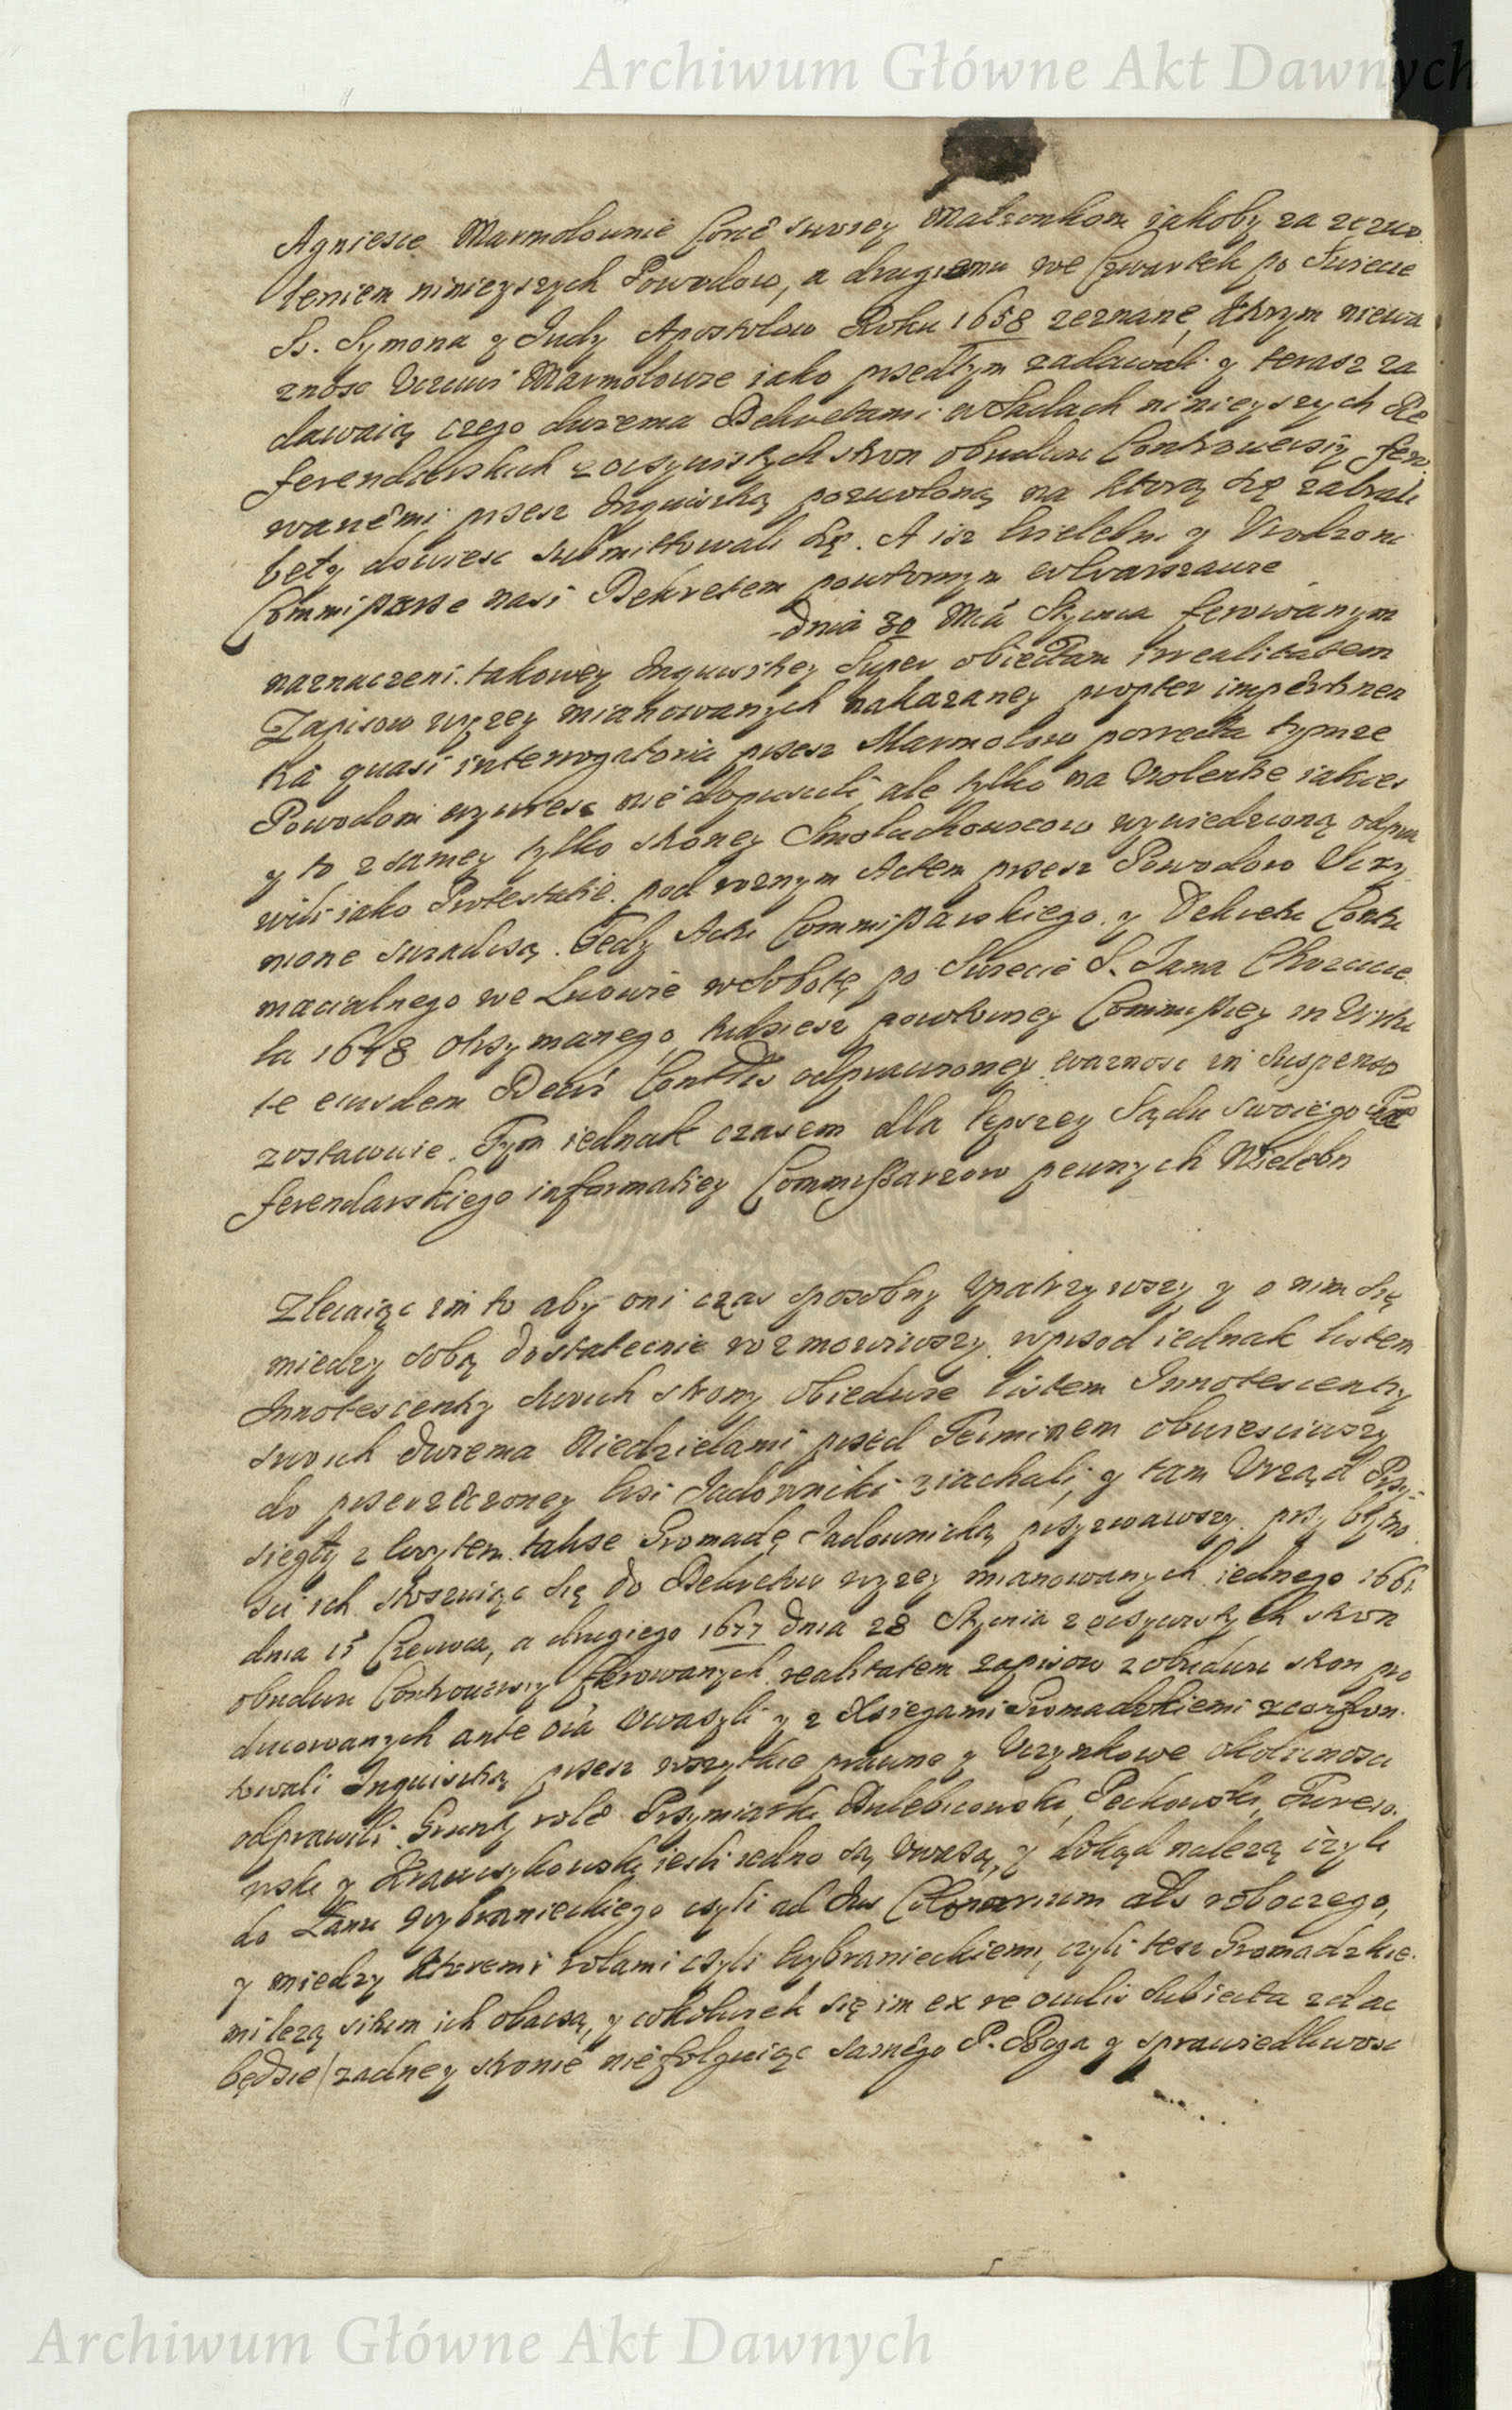 Archiwum Główne Akt Dawnych
Agniesce Marmolownie Corce swoiey Małzonkom iakoby za zezwo
leniem ninieyszych Powodow, a drugiemu we Czwartek po Swiecie
SS. Symona y Judy Apostołow Roku 1658 zeznane, ktorym niewa
znosc Uczciwi Marmolowie iako przedtym zadawali y terasz za
dawaią czego dwiema Dekretami w Sądach ninieyszych Re
ferendarskich z oczywistych stron obudwu Controwersiy fero
wanemi przesz Inquisitią pozwoloną na ktorą się zabrali
bęły dowiesc submittowali się. A isz Wielebni y Urodzoni
Commissarze nasi Dekretem powtornym w Warszawie
dnia 30 Mca Stycznia ferowanym
naznaczeni takowey Inquisitiey super obiectam irrealitatem
Zapisow wyzey mianowanych nakazaney propter impertinen
tia quasi interrogatoria przesz Marmolow porrecta tymze
Powodom wywiesc nie dopuscili, ale tylko na
y to z samey tylko strony Smoluchowscow wywiedzioną odpra
wili iako Protestatie pod roznym Actem przesz Powodow Uczy
nione swiadczą. Tedy Actu Commissarskiego y Dekretu Contu
macialnego we Lwowie w Sobotę po Swiecie S. Jana Chrzcicie
la 1648 otrzymanego, tudziesz powtorney Commissiey in Virtu
te eiusdem Decreti Conttlis odprawioney waznosc in suspenso
zostawuie. Tym iednak czasem dla lepszey Sądu swoiego Re
ferendarskiego informatiey Commissarzow pewnych Wielebn
Zlecaiąc im to aby oni czas sposobny Upatrzywszy y o nim się
miedzy sobą dostatecznie rozmowiwszy, wprzod iednak listem
Innotescenty dwuch strony obiedwie listem Innotescenty
swych dwiema Niedzielami przed Terminem obwiesciwszy
do przerzeczoney Wsi Jadownik ziachali, y tam Urząd Przy
sięgły z Woytem takze Gromadę Jadownicką przyzwawszy przy bytno
sci ich stosuiąc się do Dekretow wyzey mianowanych iednego 1661
dnia 15 Czerwca, a drugiego 1677 dnia 28 Stycznia z oczywistych stron
obudwu Controwersiy ferowanych realitatem zapisow z obudwu stron pro
ducowanych ante oia Uwazyli y z Xsięgami Gromadzkiemi zconfron
towali Inquisitią przesz wszytkie prawne y Uczynkowe okolicznosci
odprawili Grunty role Przymiarki Dulębicowski, Pechowski, Turew
wski y Krawczykowski iesli iedno są Uwazą, y dokąd nalezą czyli
do Łanu Wybranieckiego czyli ad Ius Colonarium als roboczego,
y miedzy ktoremi rolami czyli Wybranieckiemi, czyli tesz Gromadzkie
mi lezą situm ich obaczą, y cokolwiek się im ex re oculis subiecta zdac
będzie / zadney stronie nie folguiąc samego P. Boga y sprawiedliwosc
Archiwum Główne Akt Dawnych